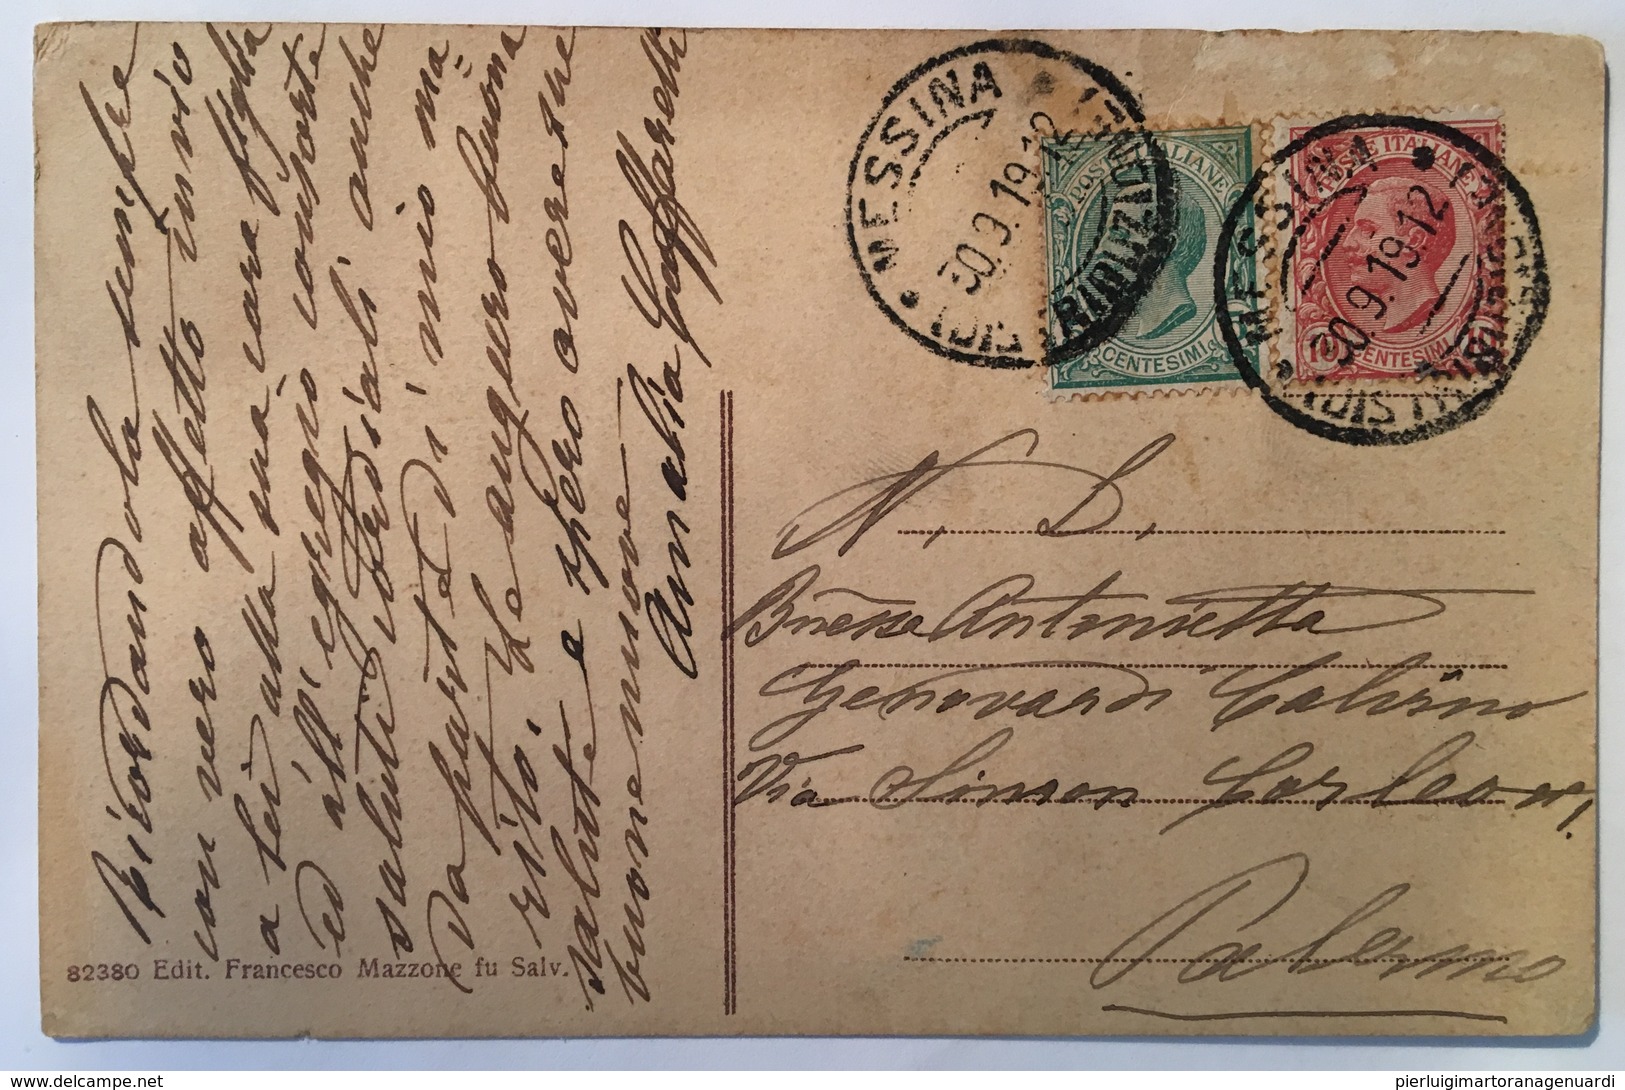 Ricordandola sempre
con vero affetto invio
a lei alla sua cara figlia
ed all'egregio consorte
saluti cordiali anche
da parte di mio ma=
rito. Le auguro buona
salute e spero avere sue
buone nuove
Amalia Gaffarelli
82380 Edit. Francesco Mazzone fu Salv.
MESSINA
30.9.19.12
(DISTRIBUZIONE)
POSTE ITALIANE
5
CENTESIMI
MESSINA
30.9.19.12
(DISTRIBUZIONE)
POSTE ITALIANE
10 CENTESIMI 10
N. D.
Antonietta
Genovardi Calvino
Via Simon
Palermo
pierluigimartoranagenuardi